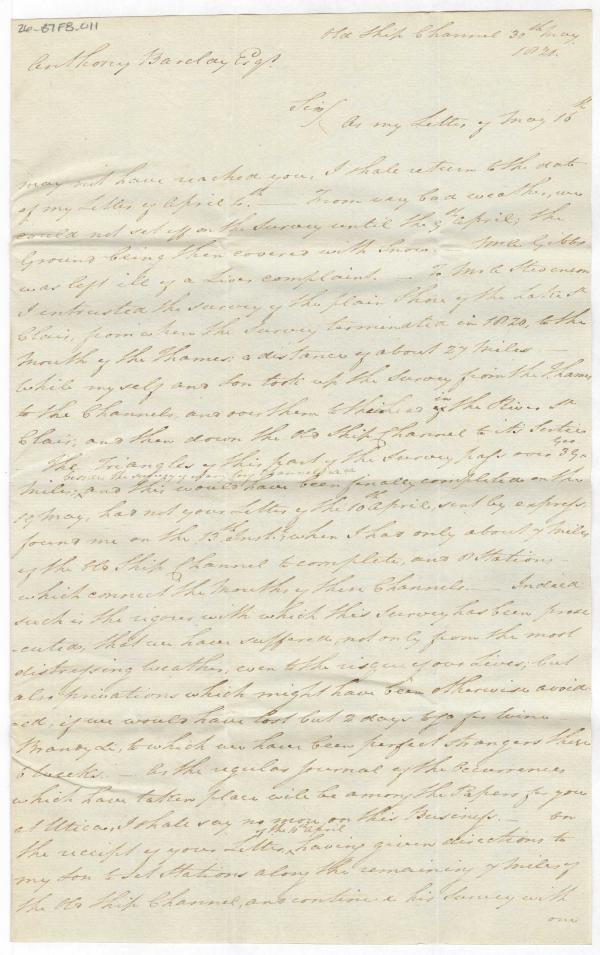 26-B7FB-011
Old Ship Channel 30th May
1821.
Anthony Barclay Esqr.
Sir/ As my Letter of May 16th
may not have reached you, I shall return to the date
of my Letter of April 6th. — From very bad weather, we
could not set off on the Survey until the 9th April; the
Ground being then covered with Snow. — Mr. Gibbs
was left ill of a Liver complaint. — To Mr. Stevenson
I entrusted the survey of the plain Shore of the Lake St.
Clair, from where the Survey terminated in 1820, to the
Mouth of the Thames; a distance of about 27 Miles —
while myself and Son took up the Survey from the Thames
to the Channels, and over them to their head in the River St
Clair; and then down the Old Ship Channel to its Entrance
The Triangles of this part of the Survey pass over 39 Geo.
Miles, and this would have been finally completed on the
29 May, had not your Letter of the 10th April, sent by express
found me on the 13th inst.; when I had only about 7 Miles
of the Old Ship Channel to complete, and 8 Stations
which connect the Mouths of these Channels. — Indeed
such is the rigour with which this Survey has been prose
-cuted, that we have suffered, not only from the most
distressing weather, even to the risque of our Lives; but
also privations which might have been otherwise avoid
-ed, if we would have lost but 2 days to go for Wine
Brandy &c, to which we have been perfect strangers these
6 weeks. — As the regular Journal of the Occurrences
which have taken place will be among the Papers for you
at Utica, I shall say no more on this Business. — On
the receipt of your Letter of the 10th April, having given directions to
my Son to set Stations along the remaining 7 Miles of
the Old Ship Channel, and continue his Survey with
our